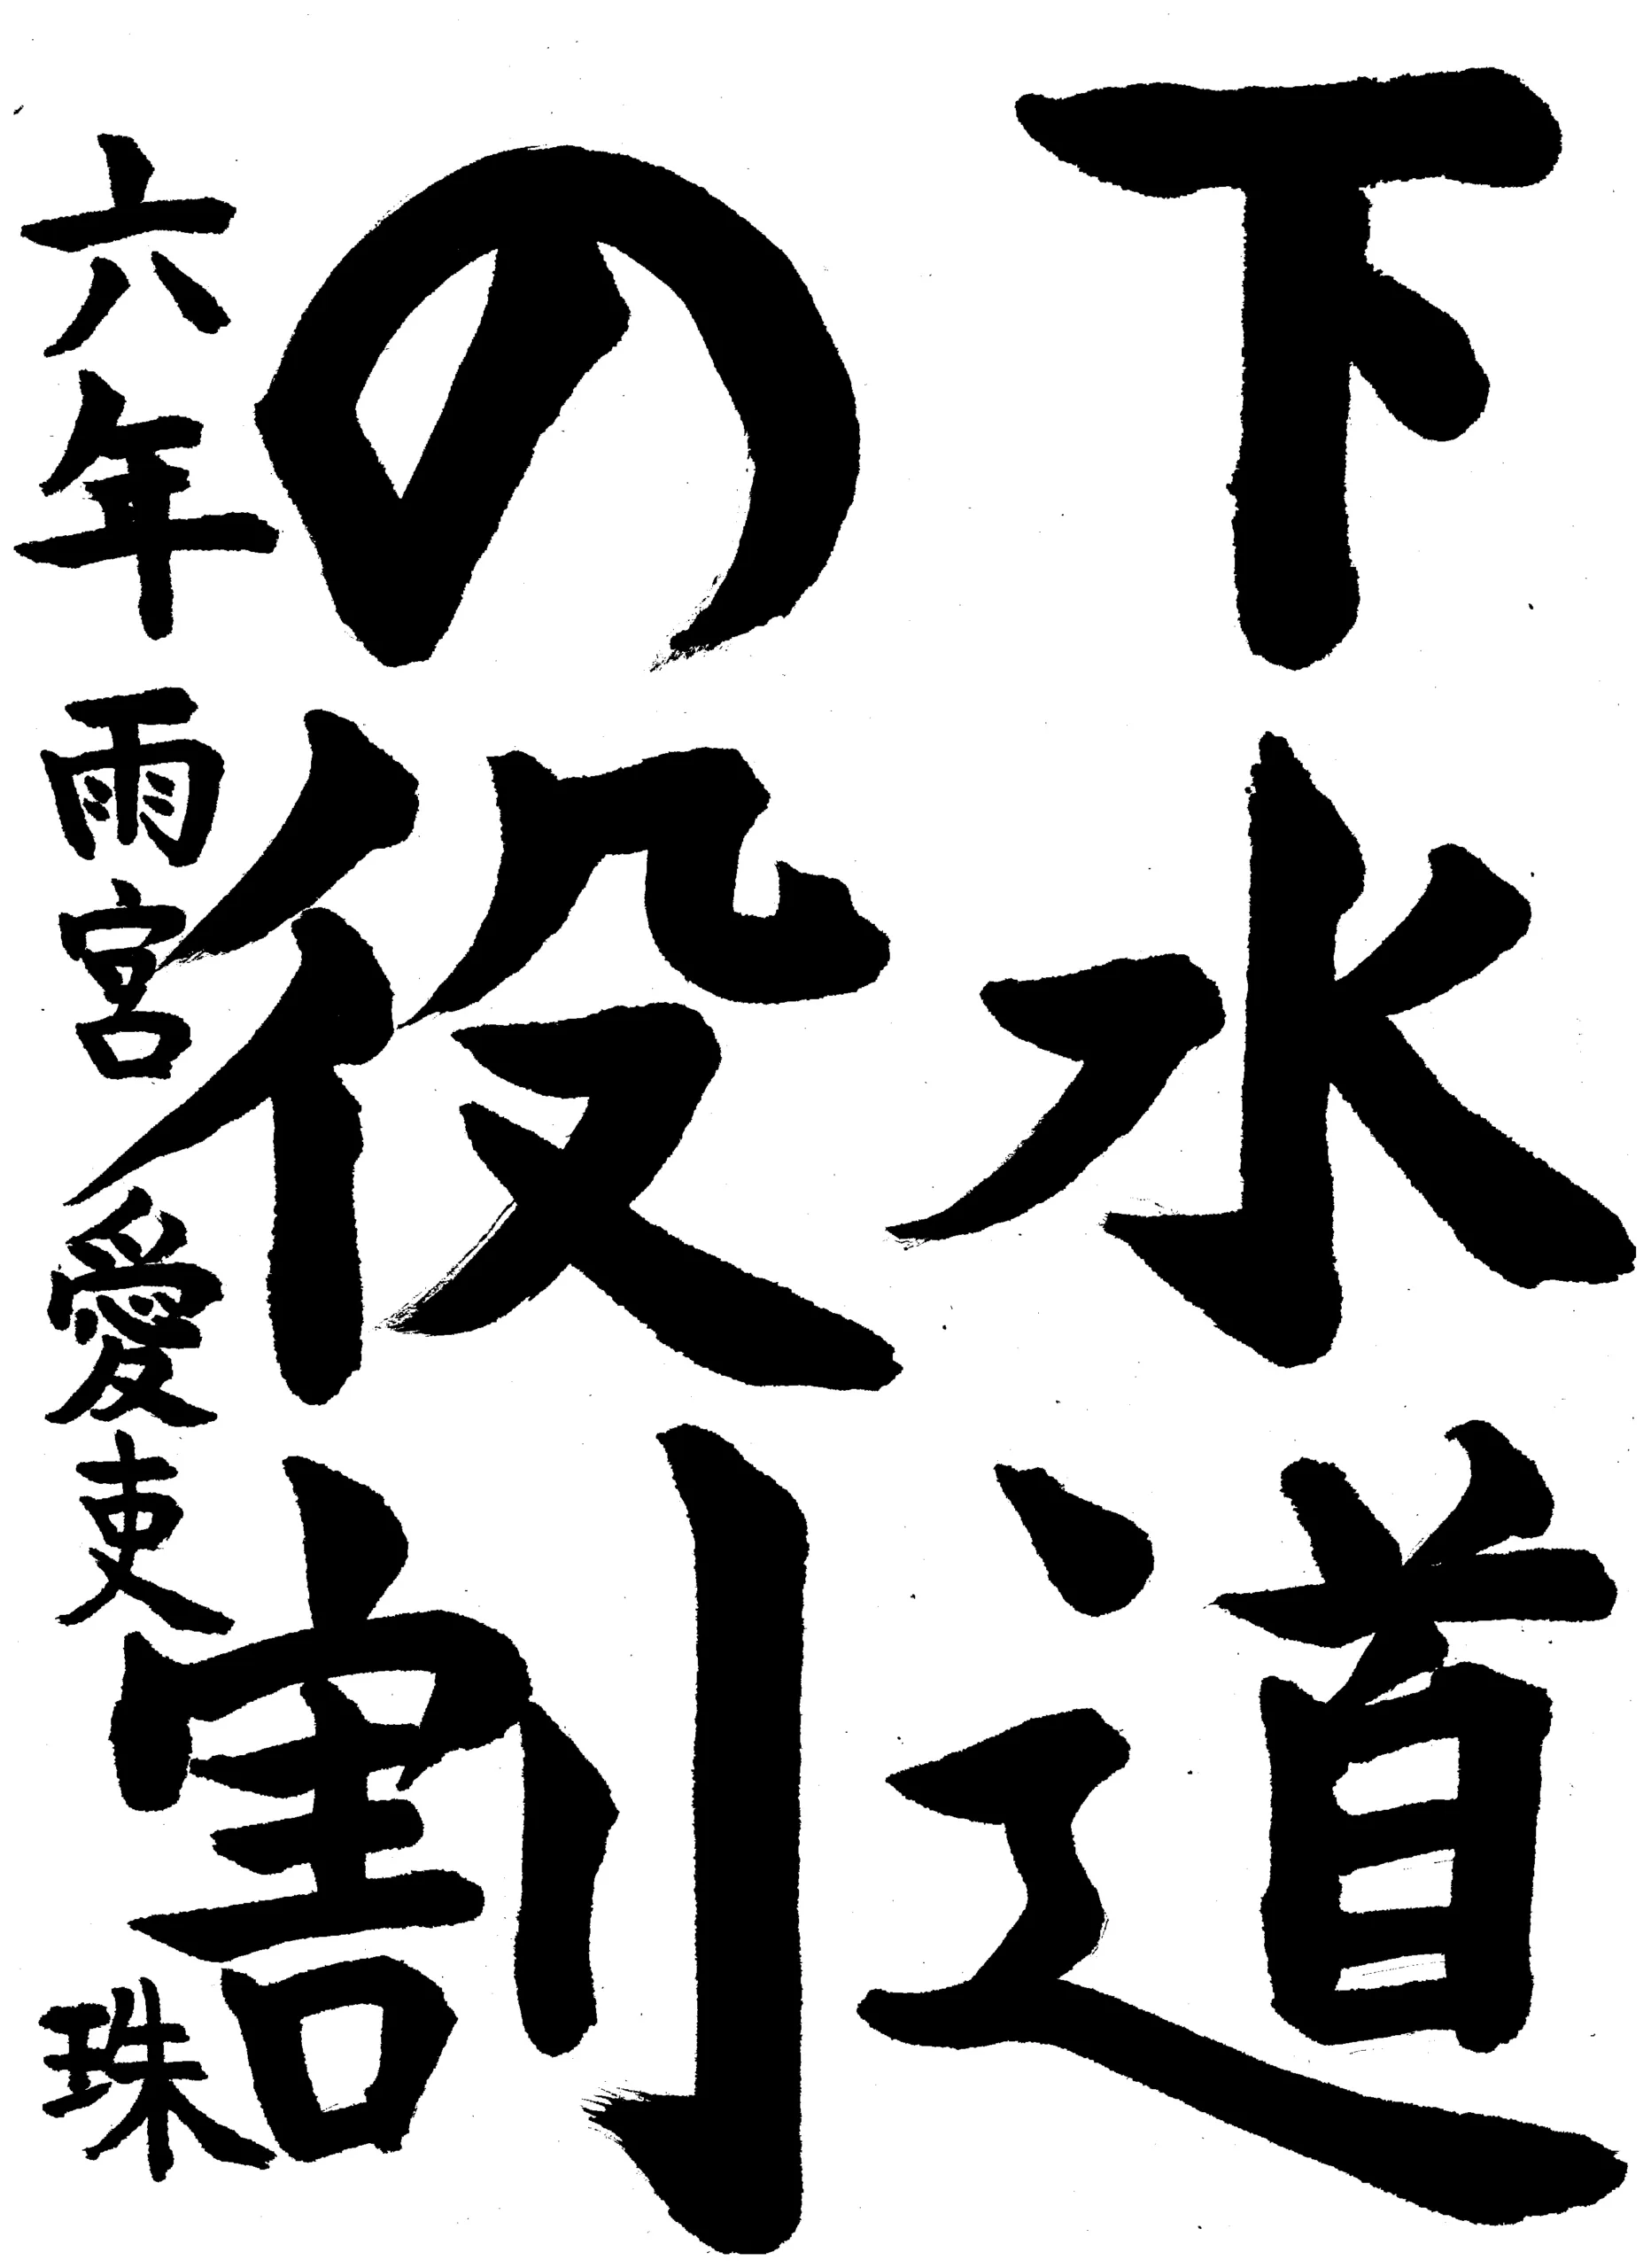 下水道
の役割
六年 雨宮 愛吏珠